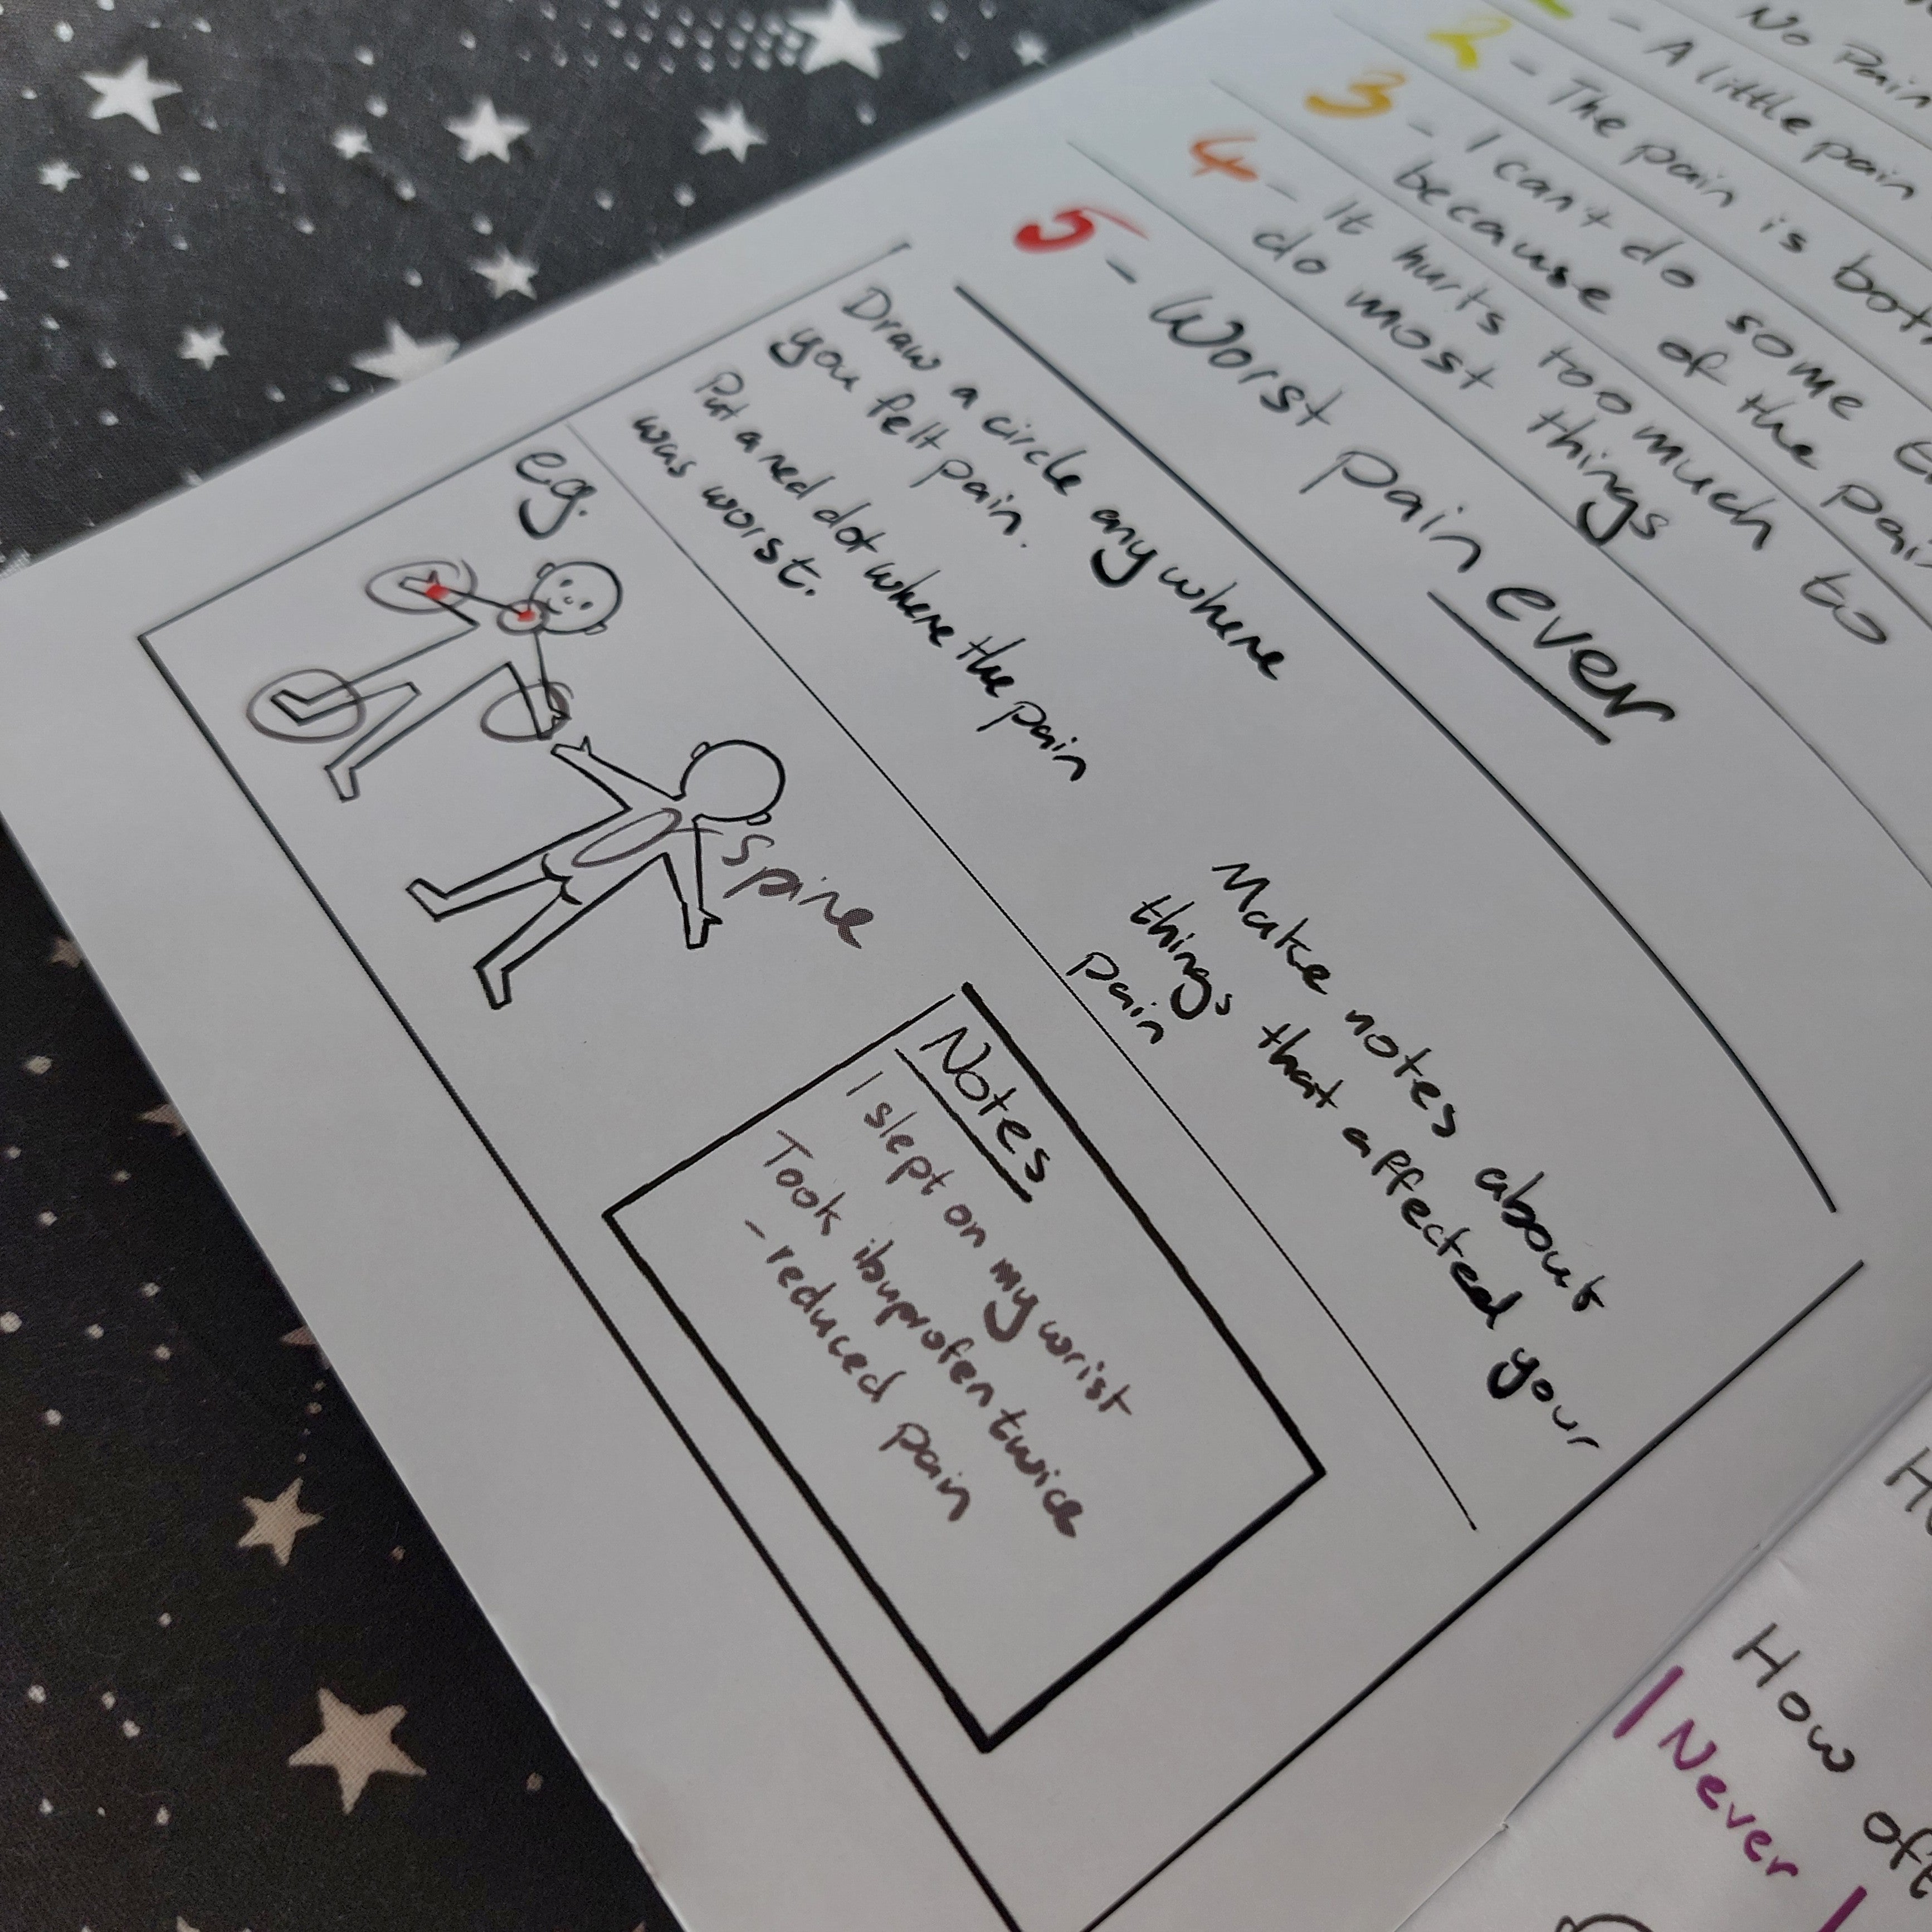 No Pain
- A little pain
2 - The pain is
3 - I can't do some
because of the
4 - It hurts too much to
do most things
5 - Worst pain ever
Draw a circle anywhere
you felt pain.
Put a red dot where the pain
was worst.
Make notes about
things that affected your
pain
eg.
spine
Notes
I slept on my wrist
Took ibuprofen twice
- reduced pain
How
Never